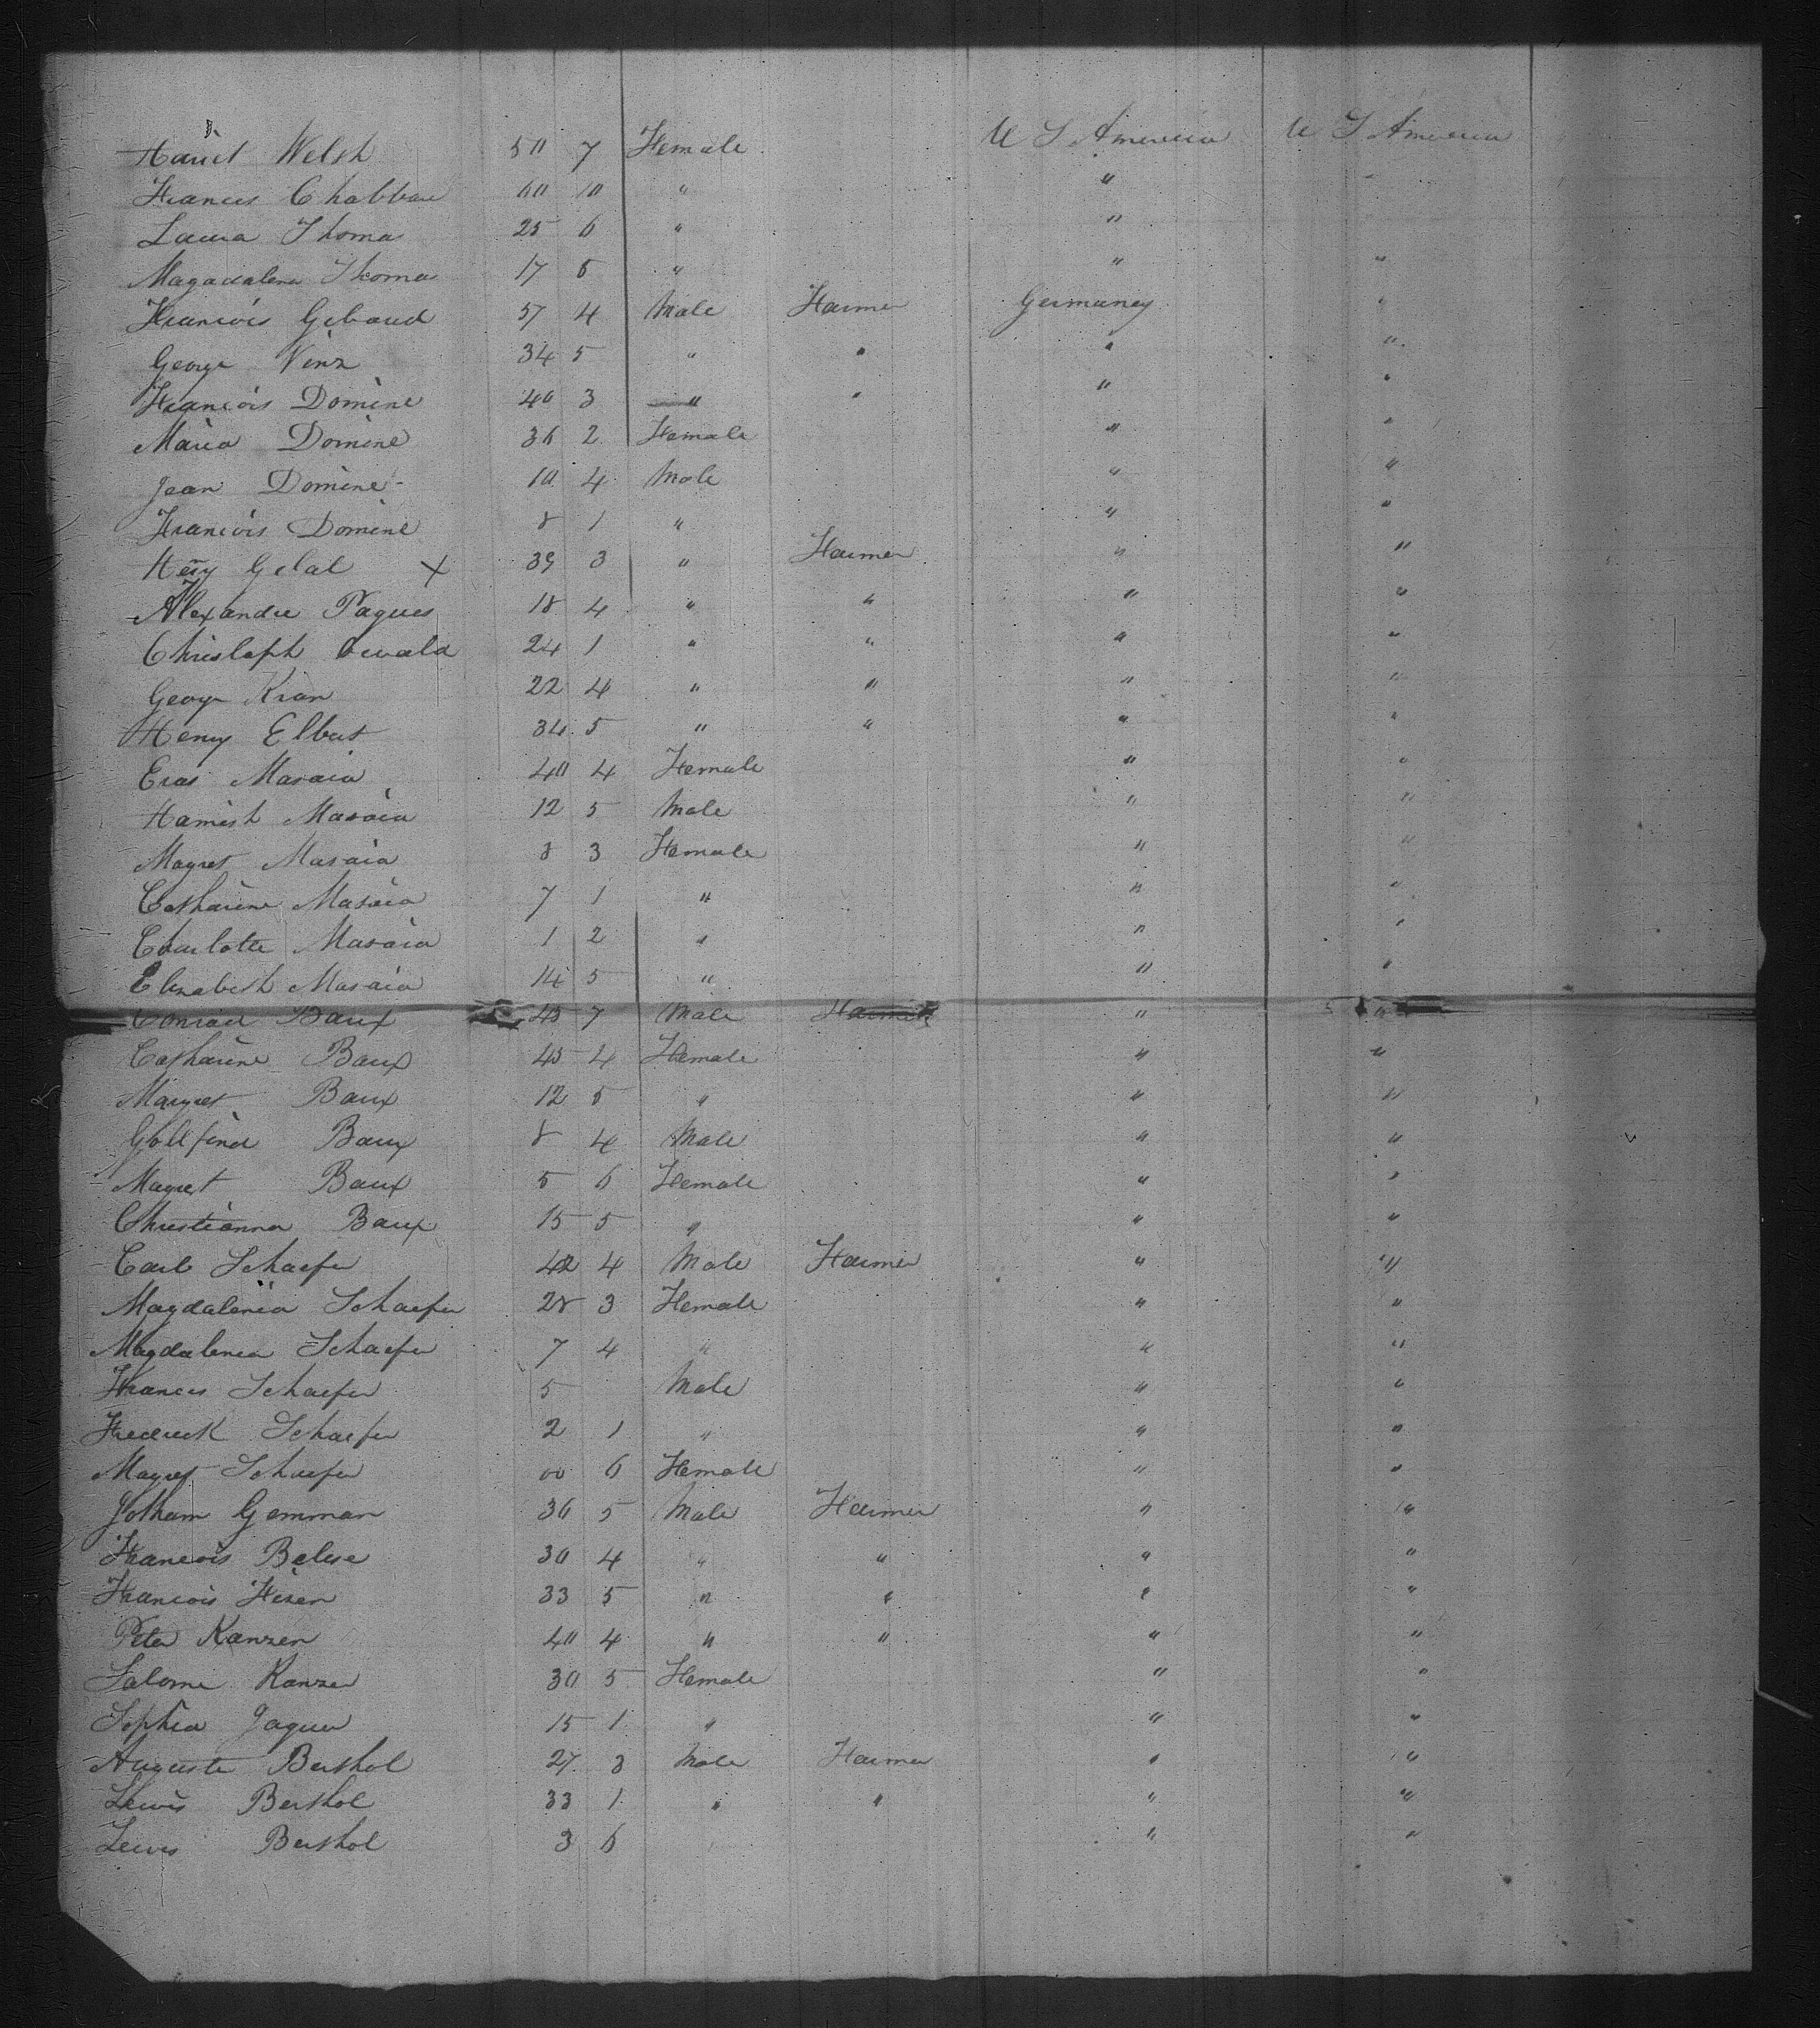 Hariet Welsh 50 7 Female U S America U S America
Frances Chabbau 60 10 " "
Laura Thoma 25 6 " "
Magadalena Thoma 17 5 " " "
Francois Gibaud 57 4 Male Farmer Germaney "
George Vinz 34 5 " " " "
Francois Domine 40 3 " " " "
Maria Domine 36 2 Female " "
Jean Domine 10 4 Male " "
Francois Domine 8 1 " " "
Hery Gelal X 39 3 " Farmer " "
Alexandre Paques 18 4 " " " "
Christoph Oswald 24 1 " " " "
George Kran 22 4 " " " "
Henry Elbert 34 5 " " " "
Eras Masaia 40 4 Female " "
Hamish Masaia 12 5 Male " "
Magret Masaia 8 3 Female " "
Catharine Masaia 7 1 " " "
Charlotte Masaia 1 2 " " "
Elizabeth Masaia 14 5 " " "
Conrad Baux 45 7 Male Farmer " "
Catharine Baux 45 4 Female " "
Margret Baux 12 5 " " "
Gottfried Baux 8 4 Male " "
Magret Baux 5 6 Female " "
Christianna Baux 15 5 " " "
Carl Schaefer 42 4 Male Farmer " "
Magdalenia Schaefer 28 3 Female " "
Magdalenia Schaefer 7 4 " " "
Frances Schaefer 5 Male " "
Fredrick Schaefer 2 1 " " "
Magret Schaefer 00 6 Female " "
Jotham Gemman 36 5 Male Farmer " "
Francois Beluse 30 4 " " " "
Francois Fisen 33 5 " " " "
Peter Kanzen 40 4 " " " "
Salome Kanzen 30 5 Female " "
Sophia Jaques 15 1 " " "
Auguste Berthol 27 3 Male Farmer " "
Lewis Berthol 33 1 " " " "
Lewis Berthol 3 6 " "